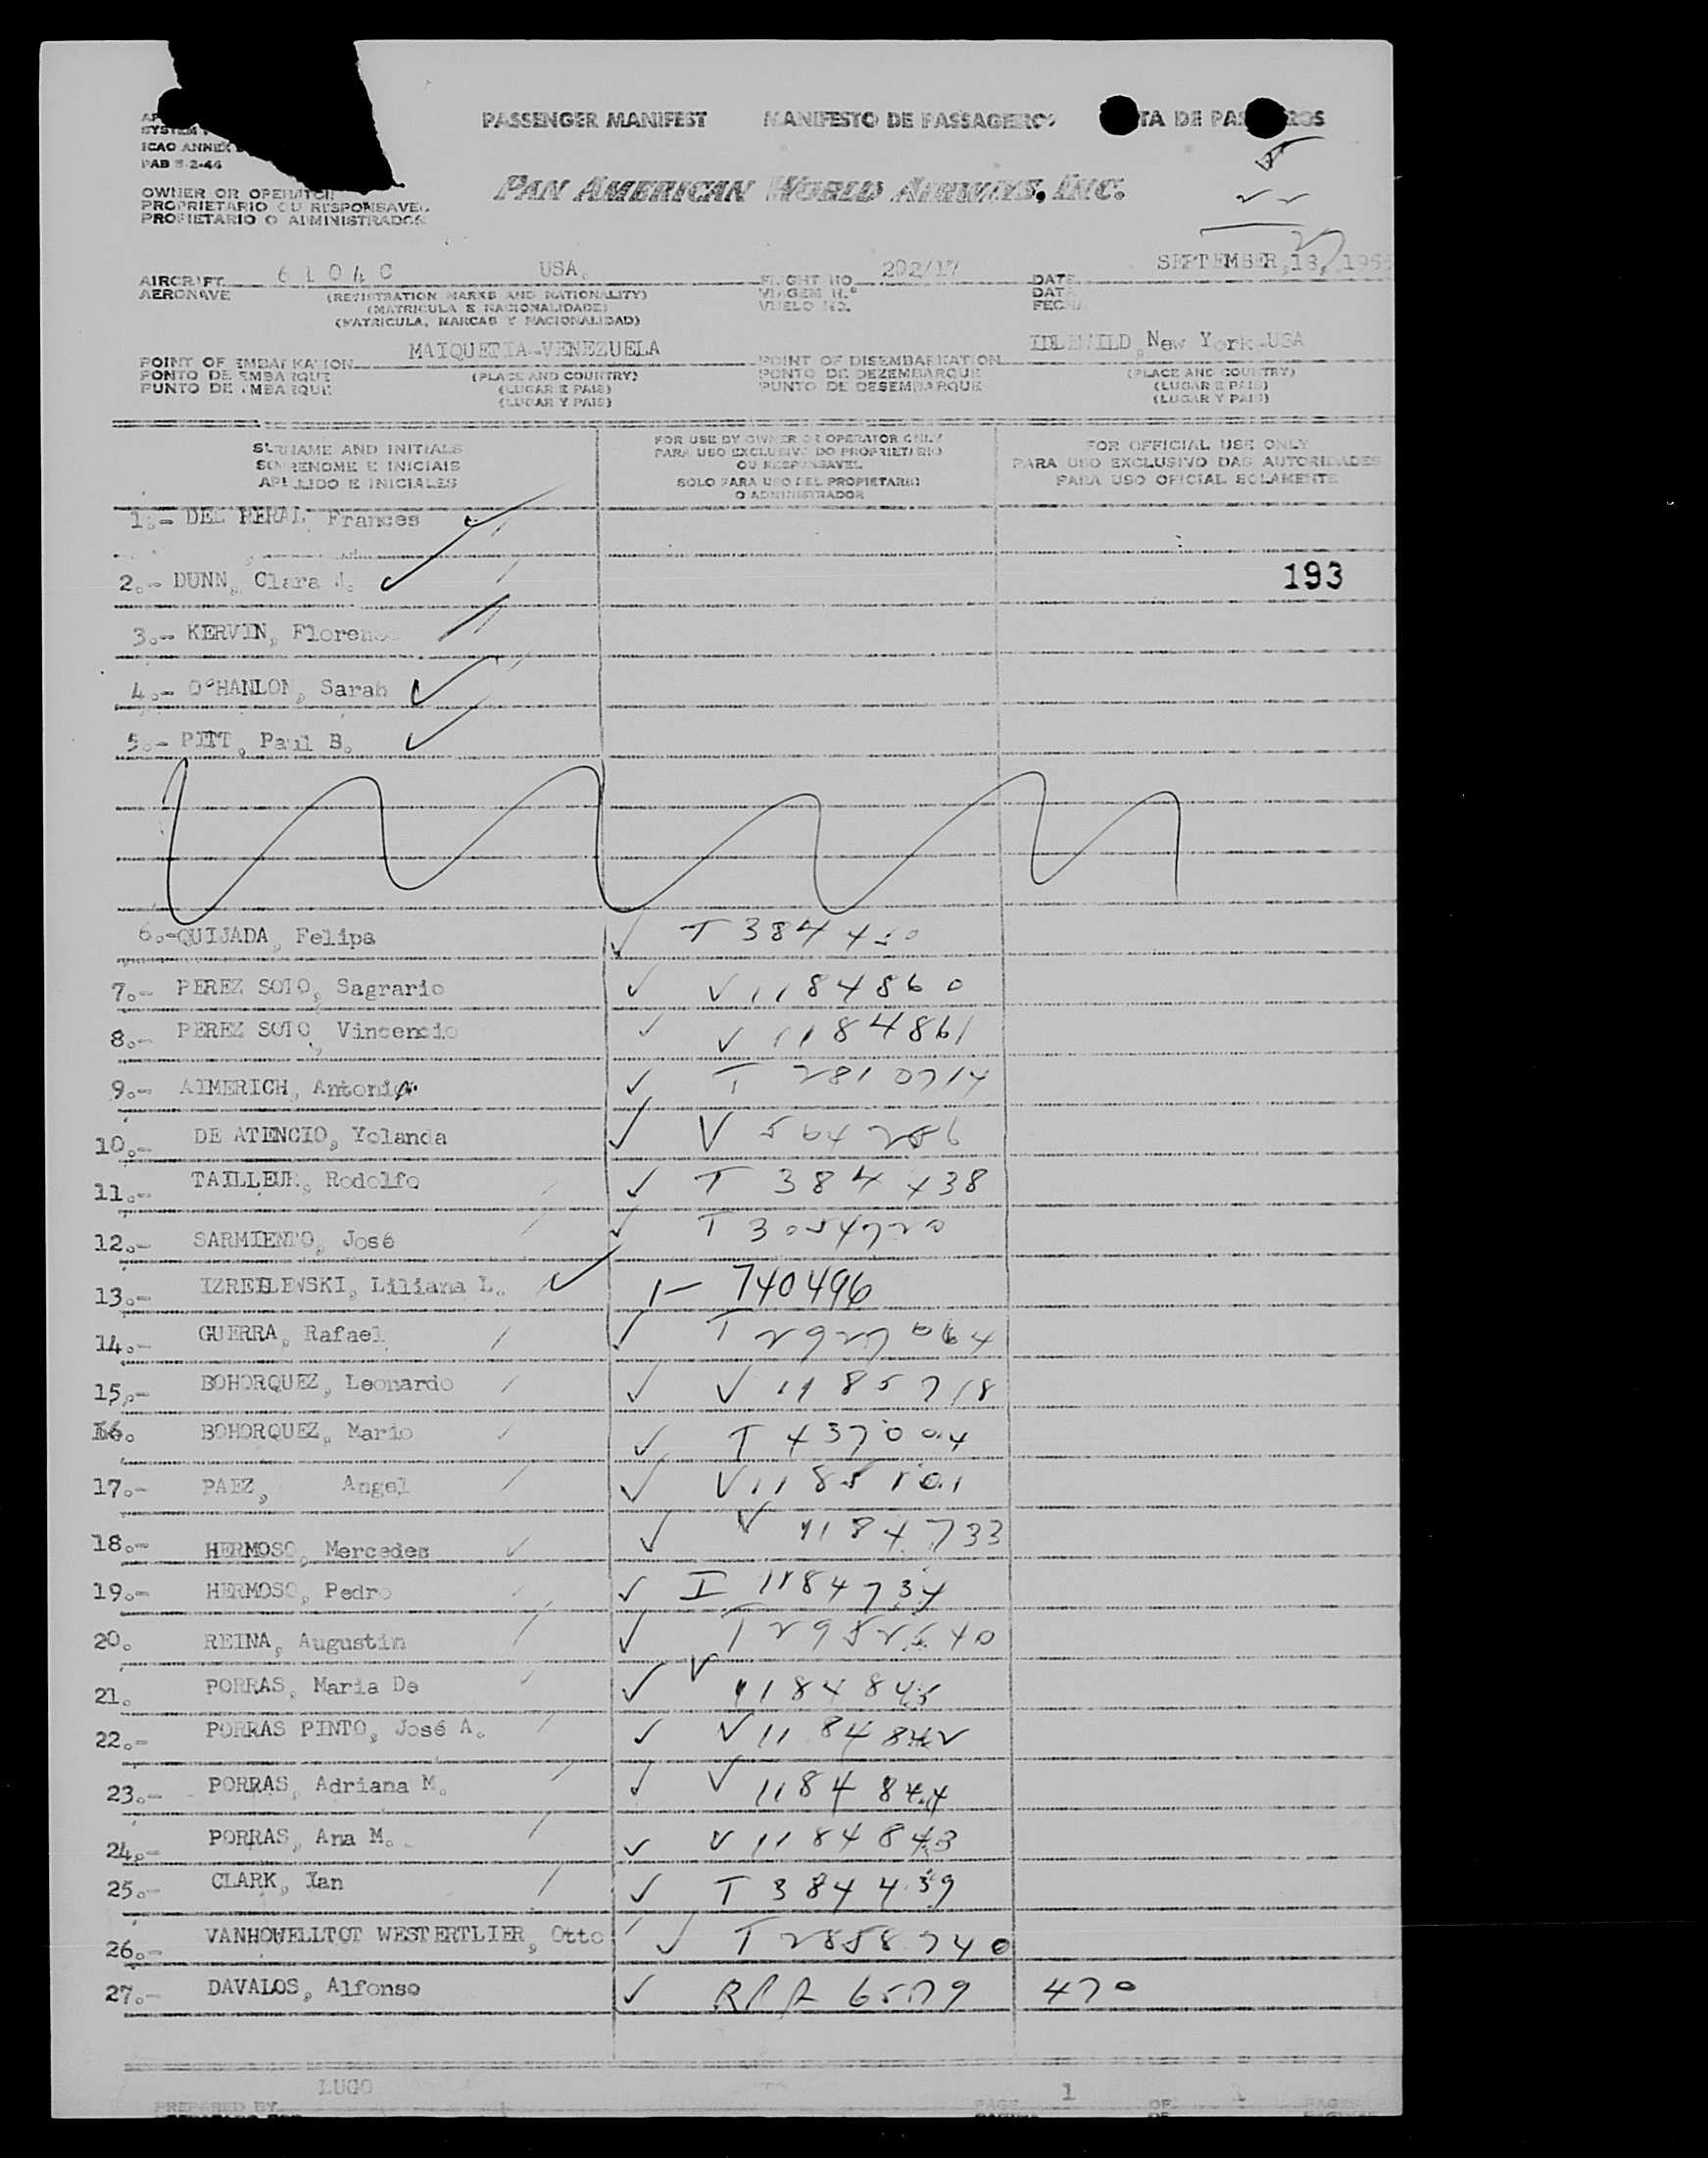 PASSENGER MANIFEST MANIFESTO DE PASSAGEIROS
ICAO ANNEX
PAN AMERICAN WORLD AIRWAYS, INC.
OWNER OR OPERATOR
PROPRIETARIO OU RESPONSAVEL
PROPIETARIO O ADMINISTRADOR
AIRCRAFT 6104C USA. FLIGHT NO 202/17 DATE SEPTEMBER,13,
AERONAVE (REGISTRATION MARKS AND NATIONALITY) VIAGEM N.º
(MATRICULA E NACIONALIDADE) VUELO NO.
(MATRICULA, MARCAS Y NACIONALIDAD)
POINT OF EMBARKATION MAIQUETIA-VENEZUELA POINT OF DISEMBARKATION IDLEWILD, New York-USA
PONTO DE EMBARQUE (PLACE AND COUNTRY) PONTO DE DEZEMBARQUE (PLACE AND COUNTRY)
PUNTO DE EMBARQUE (LUGAR E PAIS) PUNTO DE DESEMBARQUE (LUGAR E PAIS)
(LUGAR Y PAIS) (LUGAR Y PAIS)
SURNAME AND INITIALS FOR USE BY OWNER OR OPERATOR ONLY FOR OFFICIAL USE ONLY
SOBRENOME E INICIAIS PARA USO EXCLUSIVO DO PROPRIETARIO PARA USO EXCLUSIVO DAS AUTORIDADES
APELLIDO E INICIALES OU RESPONSAVEL PARA USO OFICIAL SOLAMENTE
SOLO PARA USO DEL PROPIETARIO
O ADMINISTRADOR
1.- DEL PERAL, Frances
2.- DUNN, Clara J. 193
3.- KERVIN, Florence
4.- O'HANLON, Sarah
5.- PITT, Paul B.
6.- QUIJADA, Felipa T 384450
7.- PEREZ SOTO, Sagrario V 1184860
8.- PEREZ SOTO, Vincencio V 1184861
9.- AIMERICH, Antonia T 2810714
10.- DE ATENCIO, Yolanda V 564286
11.- TAILLEUR, Rodolfo T 384438
12.- SARMIENTO, José T 3054720
13.- IZREILEWSKI, Liliana L. I- 740496
14.- GUERRA, Rafael T 2927064
15.- BOHORQUEZ, Leonardo V 1185718
16. BOHORQUEZ, Mario T 437004
17.- PAEZ, Angel V 1185101
18.- HERMOSO, Mercedes V 1184733
19.- HERMOSO, Pedro I 1184734
20. REINA, Augustin T 2952540
21. PORRAS, Maria De V 1184845
22.- PORRAS PINTO, José A. V 1184842
23.- PORRAS, Adriana M. V 1184844
24.- PORRAS, Ana M. V 1184843
25.- CLARK, Ian T 384439
26.- VANHOWELLTOT WESTERTLIER, Otto T 2858740
27.- DAVALOS, Alfonso 6579 470
LUGO
PREPARED BY PAGE 1 OF 1